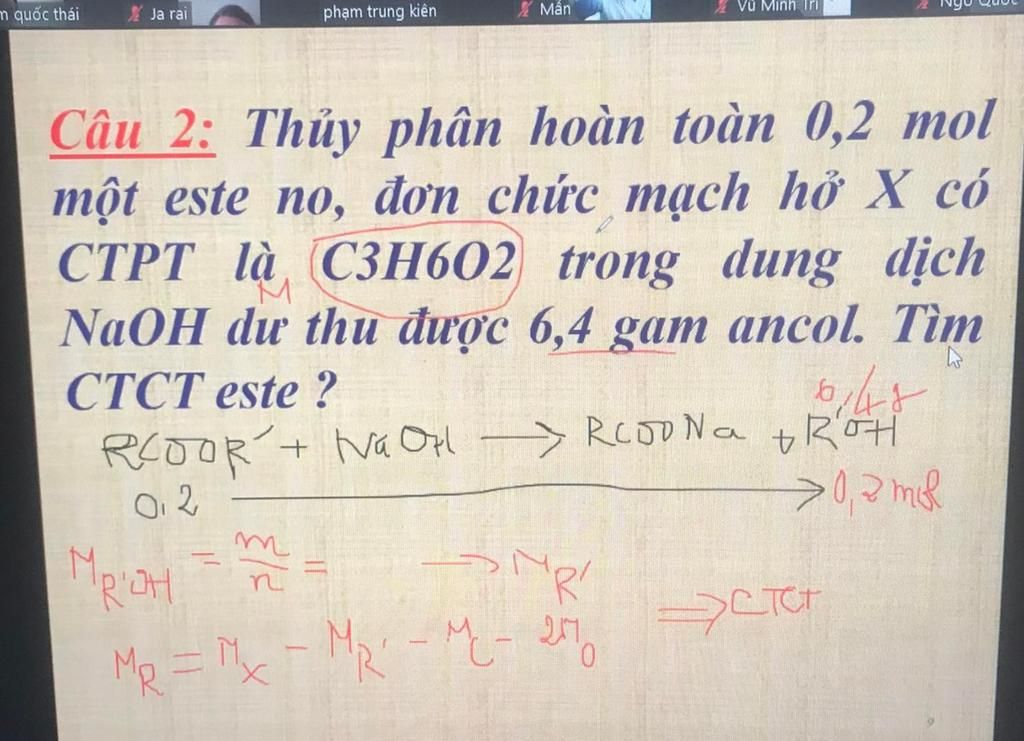 m quốc thái Ja rai phạm trung kiên Mẩn Vũ Minh Trí Ngô Quốc
Câu 2: Thủy phân hoàn toàn 0,2 mol
một este no, đơn chức mạch hở X có
CTPT là C3H6O2 trong dung dịch
M
NaOH dư thu được 6,4 gam ancol. Tìm
CTCT este ?
6,4g
RCOOR' + NaOH → RCOONa + R'OH
0,2 → 0,2 mol
M R'OH = m/n = → M R'
⇒ CTCT
M R = M X - M R' - M C - 2M O
9